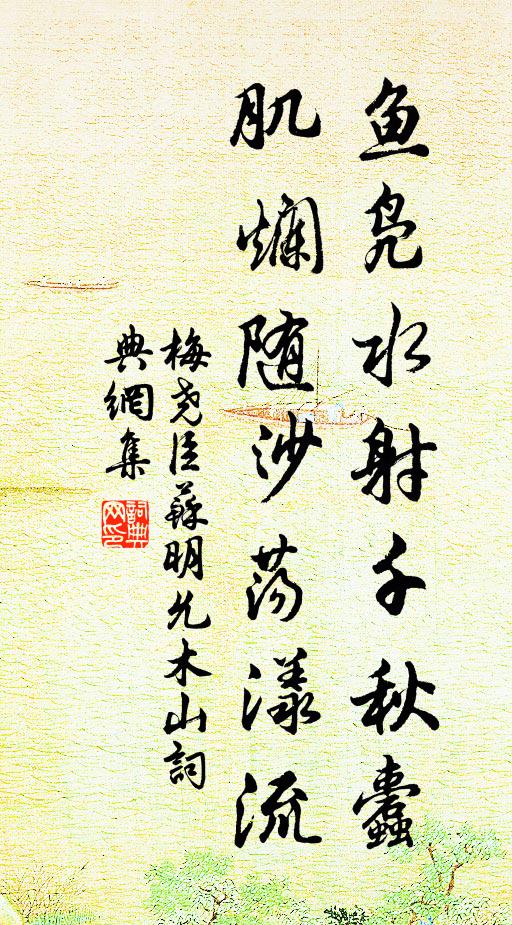 鱼凫水射千秋蠹
肌爛随沙荡漾流
梅尧臣蘇明允木山詞
典網集
詞典网印